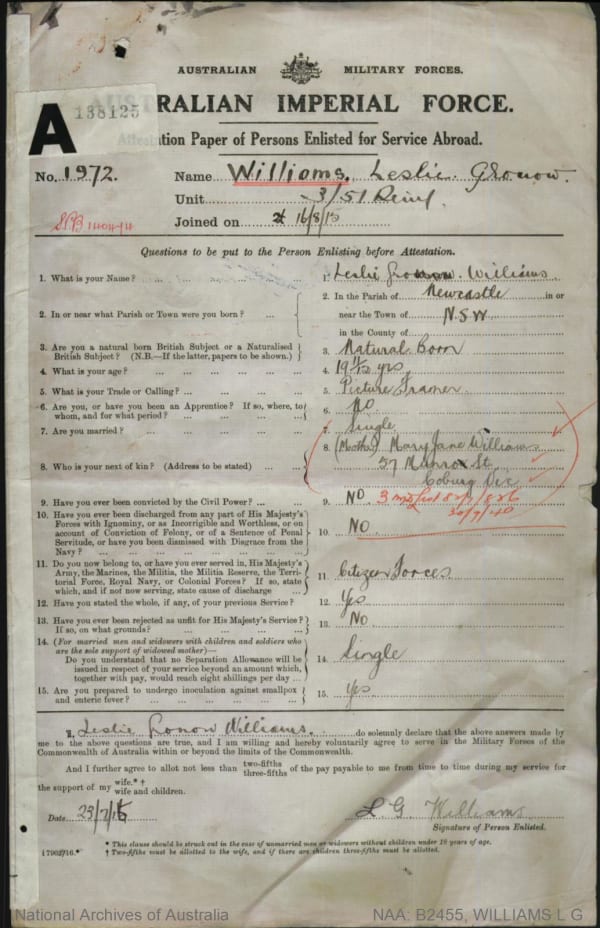 AUSTRALIAN MILITARY FORCES.
AUSTRALIAN IMPERIAL FORCE.
A 138125
Attestation Paper of Persons Enlisted for Service Abroad.
No. 1972. Name Williams, Leslie Gronow.
Unit 3/51 Reinf.
Joined on 16/8/15
Questions to be put to the Person Enlisting before Attestation.
1. What is your Name? 1. Leslie Gronow Williams
2. In or near what Parish or Town were you born? 2. In the Parish of Newcastle in or
near the Town of N.S.W
in the County of
3. Are you a natural born British Subject or a Naturalised
British Subject? (N.B.—If the latter, papers to be shown.) 3. Natural Born
4. What is your age? 4. 19 yrs
5. What is your Trade or Calling? 5. Picture Framer
6. Are you, or have you been an Apprentice? If so, where, to
whom, and for what period? 6. No
7. Are you married? 7. Single
8. Who is your next of kin? (Address to be stated) 8. (Mother) Mary Jane Williams
57 Munro St
Coburg Vic
9. Have you ever been convicted by the Civil Power? 9. No
30/9/40
10. Have you ever been discharged from any part of His Majesty's
Forces with Ignominy, or as Incorrigible and Worthless, or on
account of Conviction of Felony, or of a Sentence of Penal
Servitude, or have you been dismissed with Disgrace from the
Navy? 10. No
11. Do you now belong to, or have you ever served in, His Majesty's
Army, the Marines, the Militia, the Militia Reserve, the Terri-
torial Force, Royal Navy, or Colonial Forces? If so, state
which, and if not now serving, state cause of discharge 11. Citizen Forces
12. Have you stated the whole, if any, of your previous Service? 12. Yes
13. Have you ever been rejected as unfit for His Majesty's Service?
If so, on what grounds? 13. No
14. (For married men and widowers with children and soldiers who
are the sole support of widowed mother)—
Do you understand that no Separation Allowance will be
issued in respect of your service beyond an amount which,
together with pay, would reach eight shillings per day 14. Single
15. Are you prepared to undergo inoculation against smallpox
and enteric fever? 15. Yes
I, Leslie Gronow Williams do solemnly declare that the above answers made by
me to the above questions are true, and I am willing and hereby voluntarily agree to serve in the Military Forces of the
Commonwealth of Australia within or beyond the limits of the Commonwealth.
And I further agree to allot not less than two-fifths three-fifths of the pay payable to me from time to time during my service for
the support of my wife.* † wife and children.
Date 23/2/16 L G Williams
Signature of Person Enlisted.
* This clause should be struck out in the case of unmarried men or widowers without children under 18 years of age.
† Two-fifths must be allotted to the wife, and if there are children three-fifths must be allotted.
National Archives of Australia NAA: B2455, WILLIAMS L G